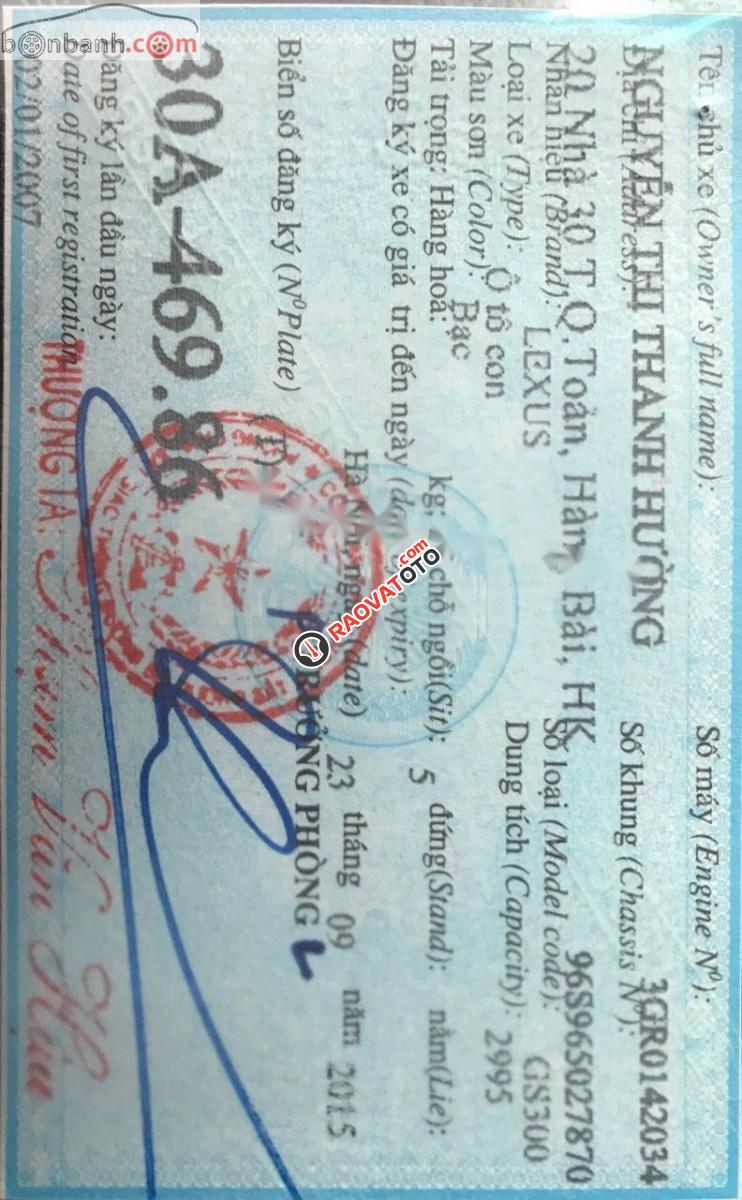 bonbanh.com
Tên chủ xe (Owner's full name): Số máy (Engine Nº):
NGUYỄN THỊ THANH HƯỜNG 3GR0142034
Địa chỉ (Address): Số khung (Chassis Nº):
20 Nhà 30 T.Q.Toản, Hàng Bài, HK 96S965027870
Nhãn hiệu (Brand): LEXUS Số loại (Model code): GS300
Loại xe (Type): Ô tô con Dung tích (Capacity): 2995
Màu sơn (Color): Bạc
Tải trọng: Hàng hoá: kg; chỗ ngồi(Sit): 5 đứng(Stand): nằm(Lie):
Đăng ký xe có giá trị đến ngày (date expiry):
Hà Nội, ngày (date) 23 tháng 09 năm 2015
Biển số đăng ký (NºPlate) (T) TRƯỞNG PHÒNG
30A-469.86
RAOVATOTO.com
Đăng ký lần đầu ngày:
Date of first registration
02/01/2007
THƯỢNG TÁ